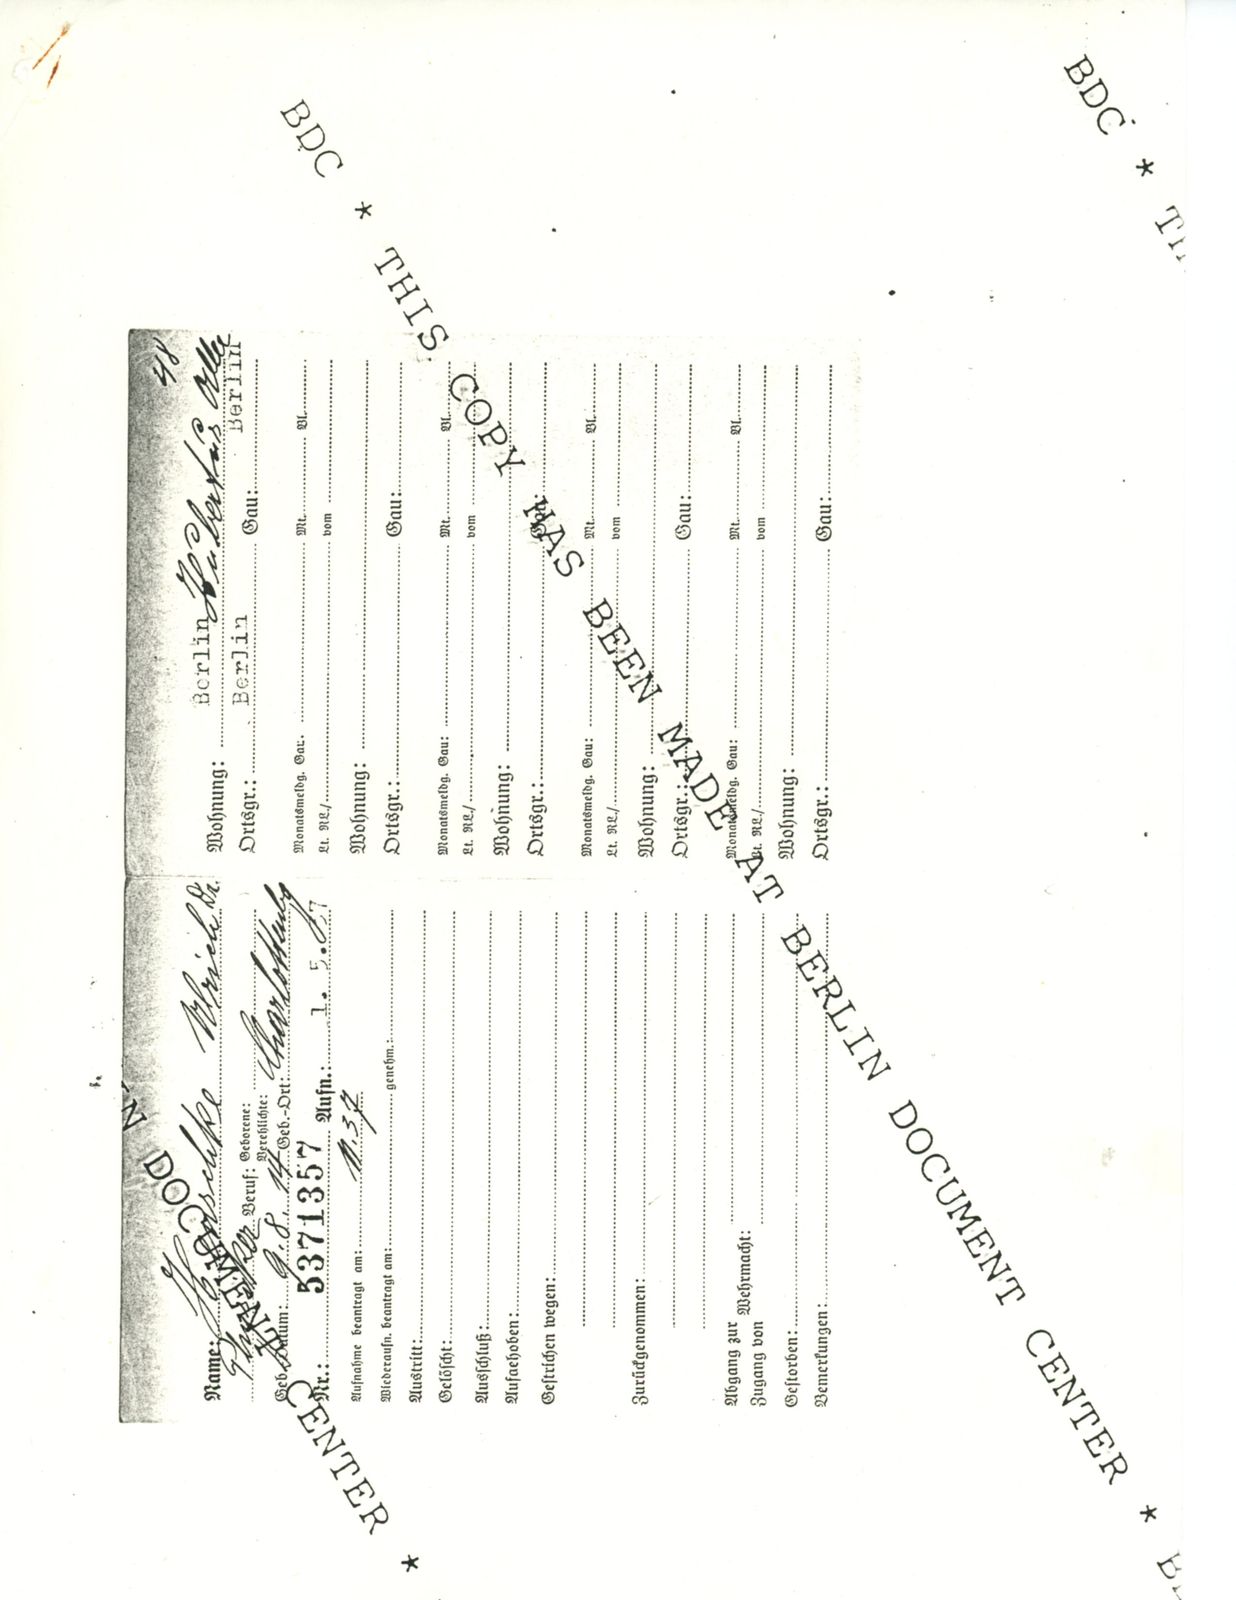 BDC * THIS COPY HAS BEEN MADE AT BERLIN DOCUMENT CENTER * B
BDC * TH
N DOCUMENT CENTER *
Name: Ulrich Dr.
Beruf: Geborene:
Verehlichte:
Geb.-Datum: 9. 8. 14 Geb.-Ort: Charlottenbg
Nr.: 5371357 Aufn.: 1. 5. 37
Aufnahme beantragt am: 11. 37
Wiederaufn. beantragt am: genehm.:
Austritt:
Gelöscht:
Ausschluß:
Aufgehoben:
Gestrichen wegen:
Zurückgenommen:
Abgang zur Wehrmacht:
Zugang von
Gestorben:
Bemerkungen:
48
Wohnung: Berlin Hubertus Allee
Ortsgr.: Berlin Gau: Berlin
Monatsmeldg. Gau: Mt. Bl.
Lt. RL./ vom
Wohnung:
Ortsgr.: Gau:
Monatsmeldg. Gau: Mt. Bl.
Lt. RL./ vom
Wohnung:
Ortsgr.: Gau:
Monatsmeldg. Gau: Mt. Bl.
Lt. RL./ vom
Wohnung:
Ortsgr.: Gau:
Monatsmeldg. Gau: Mt. Bl.
Lt. RL./ vom
Wohnung:
Ortsgr.: Gau: